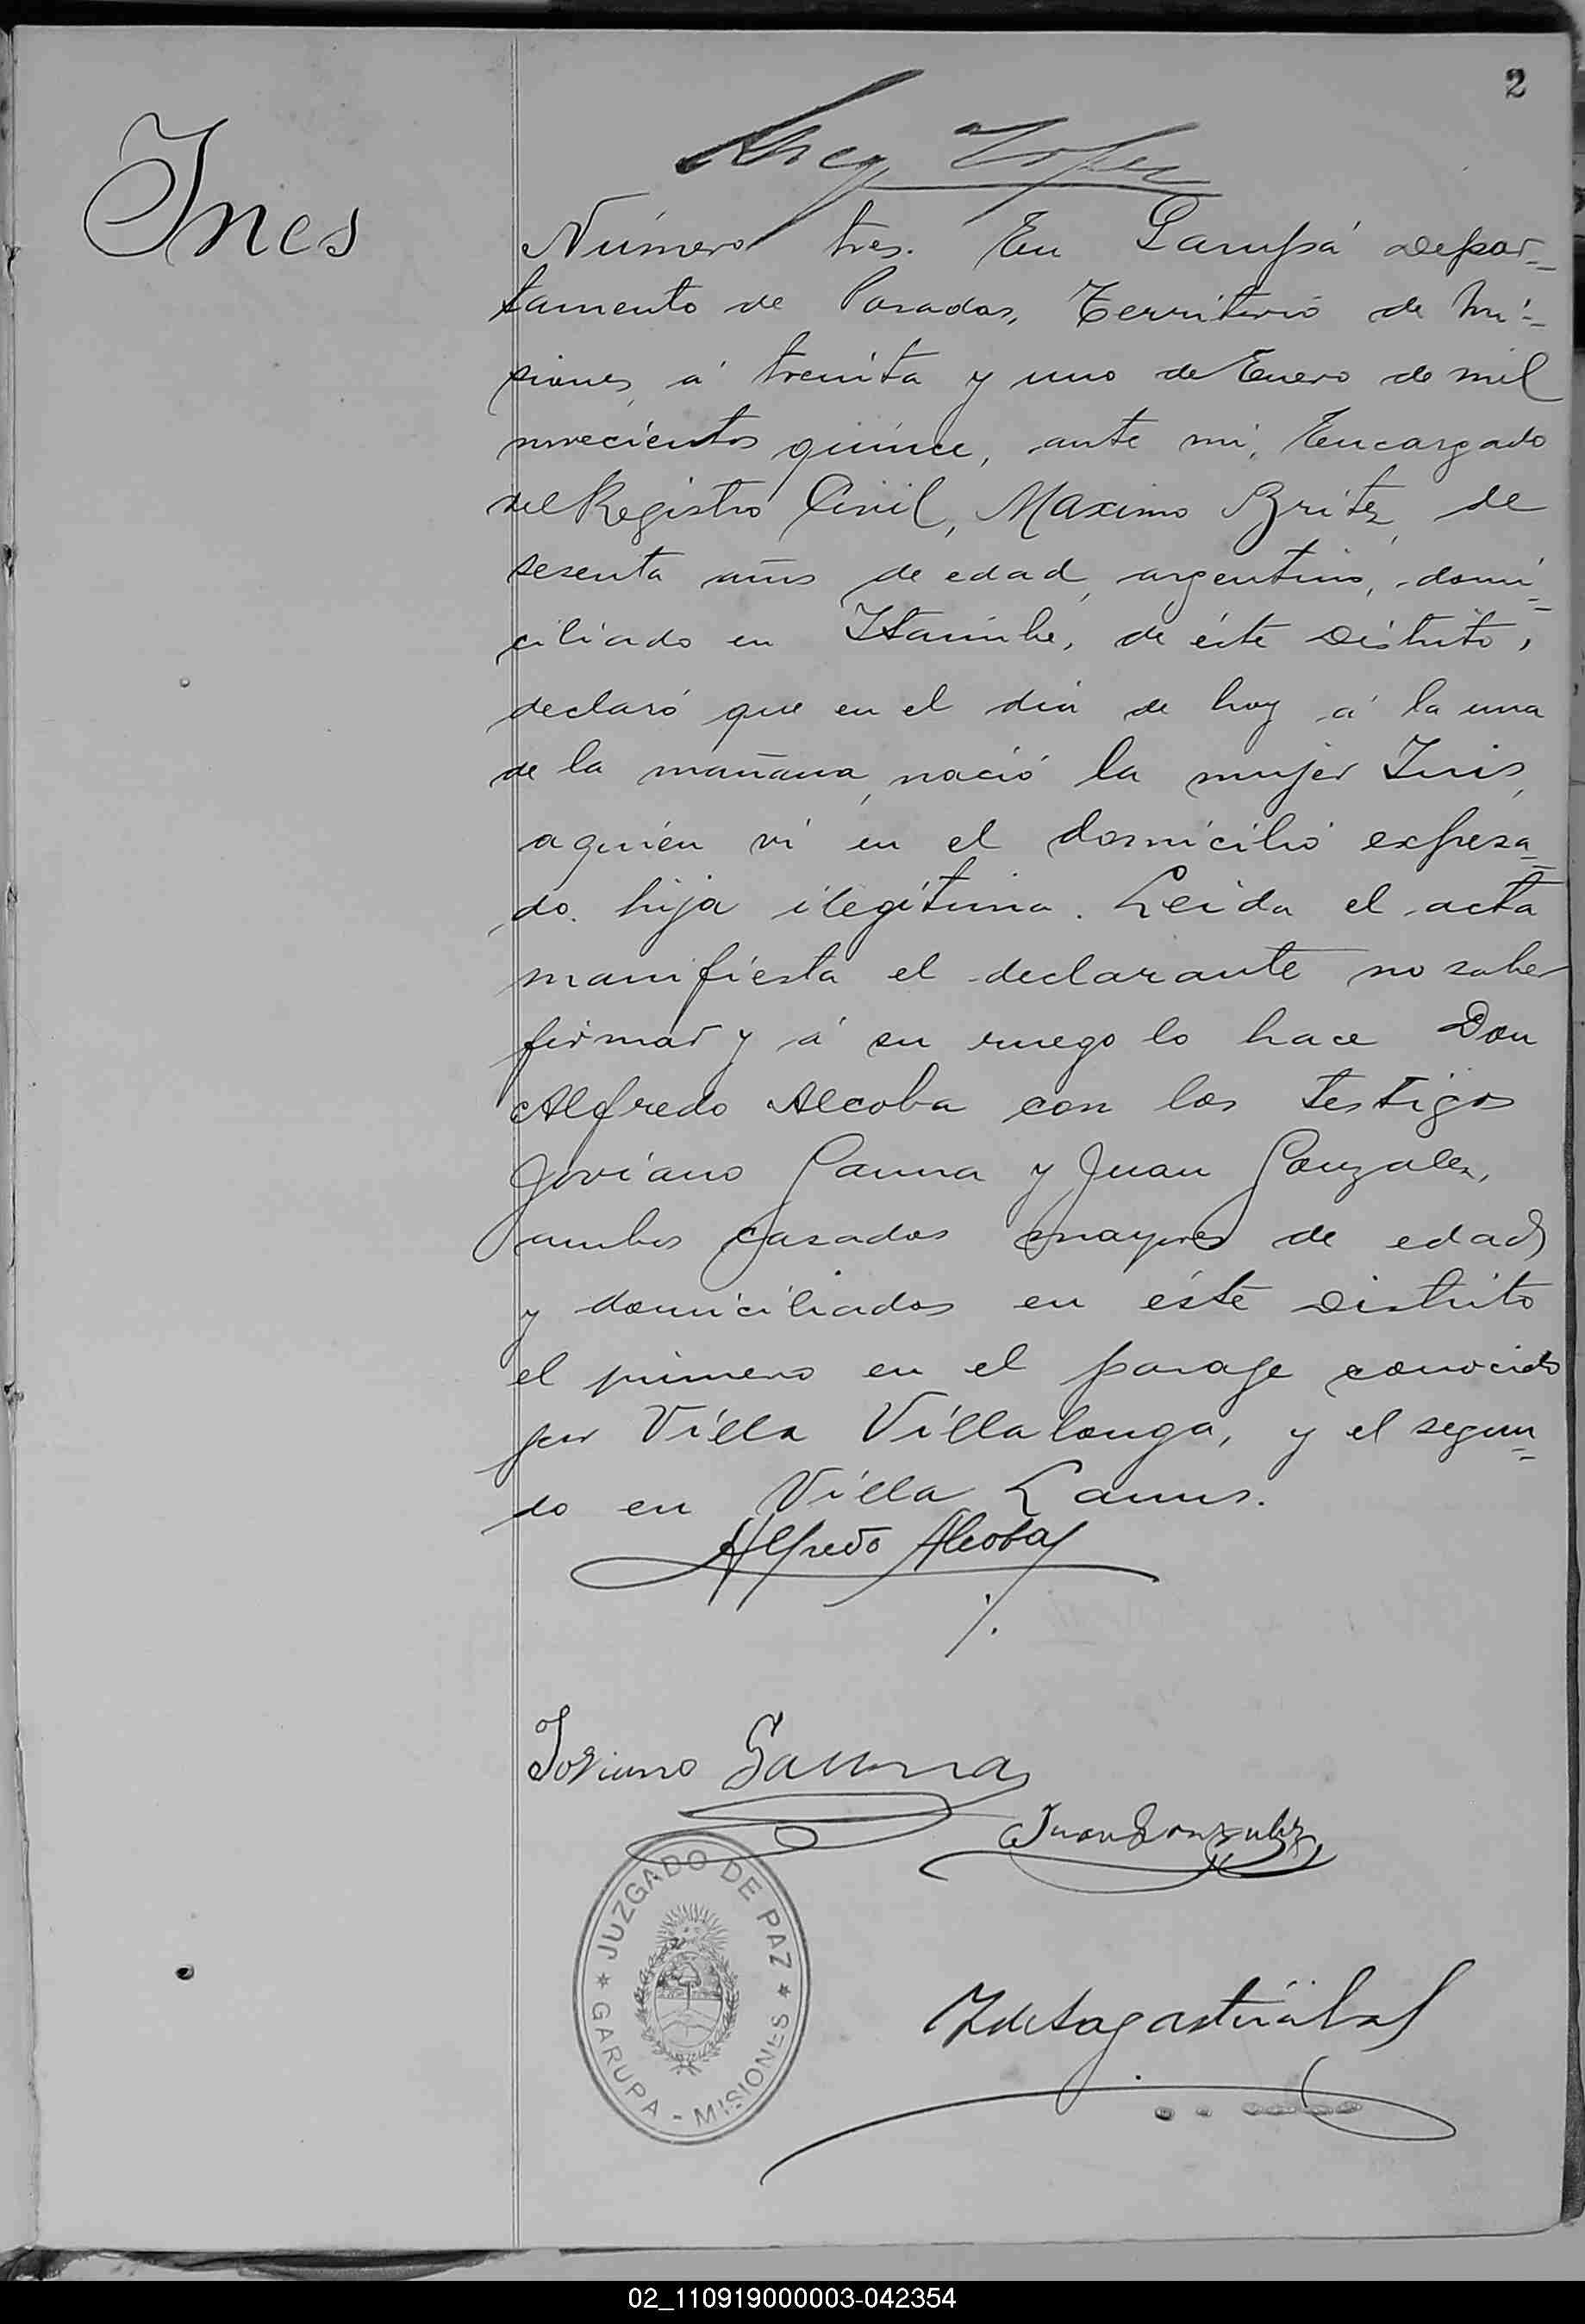 2
Lopez
Ines
Número tres. En Garupá Depar-
tamento de Posadas, Territorio de Mi-
siones, á treinta y uno de Enero de mil
novecientos quince, ante mi, Encargado
del Registro Civil, Maximo Britez, de
sesenta años de edad, argentino, domi-
ciliado en Itaimbe, de éste Distrito,
declaró que en el dia de hoy á la una
de la mañana, nació la mujer Inés,
a quién vi en el domicilio expresa-
do. hija ilegítima. Leida el acta
manifiesta el declarante no saber
firmar y á su ruego lo hace Don
Alfredo Alcoba con los testigos
Joviano Gauna y Juan Gonzalez,
ambos casados mayores de edad
y domiciliados en éste Distrito
el primero en el parage conocido
por Villa Villalonga, y el segun-
do en Villa Lanus.
Alfredo Alcoba
Joviano Gauna
Juan Gonzalez
JUZGADO DE PAZ
GARUPA - MISIONES
02_110919000003-042354